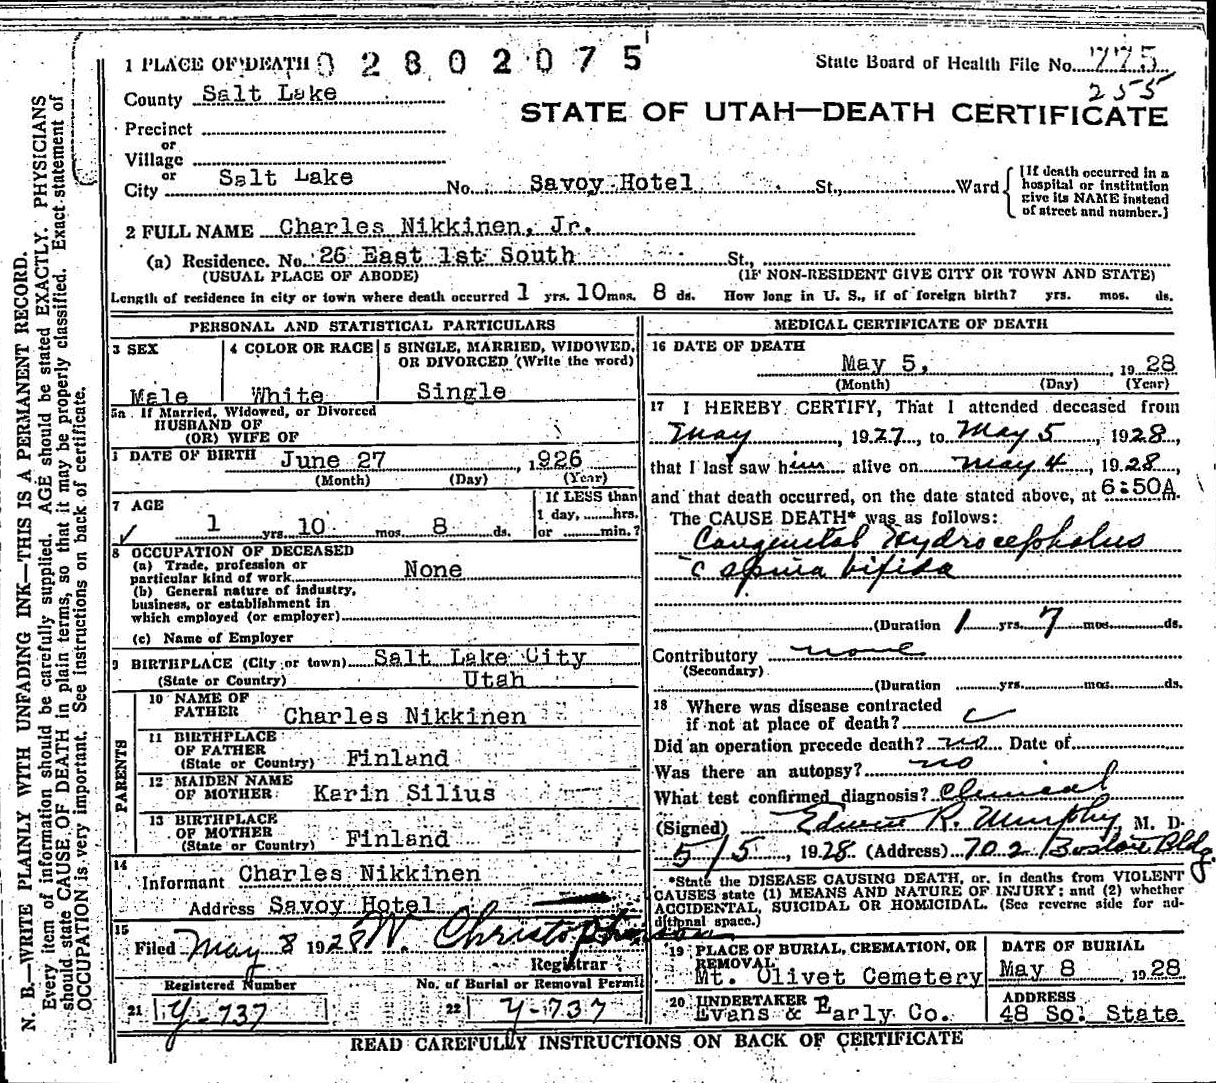 N. B.—WRITE PLAINLY WITH UNFADING INK—THIS IS A PERMANENT RECORD.
Every item of information should be carefully supplied. AGE should be stated EXACTLY. PHYSICIANS
should state CAUSE OF DEATH in plain terms, so that it may be properly classified. Exact statement of
OCCUPATION is very important. See instructions on back of certificate.
1 PLACE OF DEATH 02802075 State Board of Health File No. 775
255
County Salt Lake
STATE OF UTAH—DEATH CERTIFICATE
Precinct
or
Village
or
City Salt Lake No. Savoy Hotel St., Ward [If death occurred in a hospital or institution give its NAME instead of street and number.]
2 FULL NAME Charles Nikkinen, Jr.
(a) Residence. No. 26 East 1st South St.,
(USUAL PLACE OF ABODE) (IF NON-RESIDENT GIVE CITY OR TOWN AND STATE)
Length of residence in city or town where death occurred 1 yrs. 10 mos. 8 ds. How long in U. S., if of foreign birth? yrs. mos. ds.
PERSONAL AND STATISTICAL PARTICULARS
3 SEX 4 COLOR OR RACE 5 SINGLE, MARRIED, WIDOWED,
OR DIVORCED (Write the word)
Male White Single
5a If Married, Widowed, or Divorced
HUSBAND OF
(OR) WIFE OF
DATE OF BIRTH June 27, 1926
(Month) (Day) (Year)
7 AGE If LESS than
1 day, hrs.
1 yrs. 10 mos. 8 ds. or min.?
8 OCCUPATION OF DECEASED
(a) Trade, profession or
particular kind of work None
(b) General nature of industry,
business, or establishment in
which employed (or employer)
(c) Name of Employer
9 BIRTHPLACE (City or town) Salt Lake City
(State or Country) Utah
PARENTS
10 NAME OF
FATHER Charles Nikkinen
11 BIRTHPLACE
OF FATHER
(State or Country) Finland
12 MAIDEN NAME
OF MOTHER Karin Silius
13 BIRTHPLACE
OF MOTHER
(State or Country) Finland
14
Informant Charles Nikkinen
Address Savoy Hotel
15
Filed May 8 1928 W. Christopherson
Registrar
Registered Number No. of Burial or Removal Permit
21 Y-737 22 Y-737
MEDICAL CERTIFICATE OF DEATH
16 DATE OF DEATH
May 5, 1928
(Month) (Day) (Year)
17 I HEREBY CERTIFY, That I attended deceased from
May, 1927, to May 5, 1928,
that I last saw him alive on May 4, 1928,
and that death occurred, on the date stated above, at 6:50A.
The CAUSE DEATH* was as follows:
Congenital Hydrocephalus
c spina bifida
(Duration 1 yrs. 7 mos. ds.
Contributory none
(Secondary)
(Duration yrs. mos. ds.
18 Where was disease contracted
if not at place of death?
Did an operation precede death? no Date of
Was there an autopsy? no
What test confirmed diagnosis? Clinical
(Signed) Edwin R. Murphy, M. D.
5/5, 1928 (Address) 702 Boston Bldg.
*State the DISEASE CAUSING DEATH, or, in deaths from VIOLENT
CAUSES state (1) MEANS AND NATURE OF INJURY; and (2) whether
ACCIDENTAL, SUICIDAL OR HOMICIDAL. (See reverse side for ad-
ditional space.)
19 PLACE OF BURIAL, CREMATION, OR
REMOVAL
Mt. Olivet Cemetery
DATE OF BURIAL
May 8 1928
20 UNDERTAKER
Evans & Early Co.
ADDRESS
48 So. State
READ CAREFULLY INSTRUCTIONS ON BACK OF CERTIFICATE